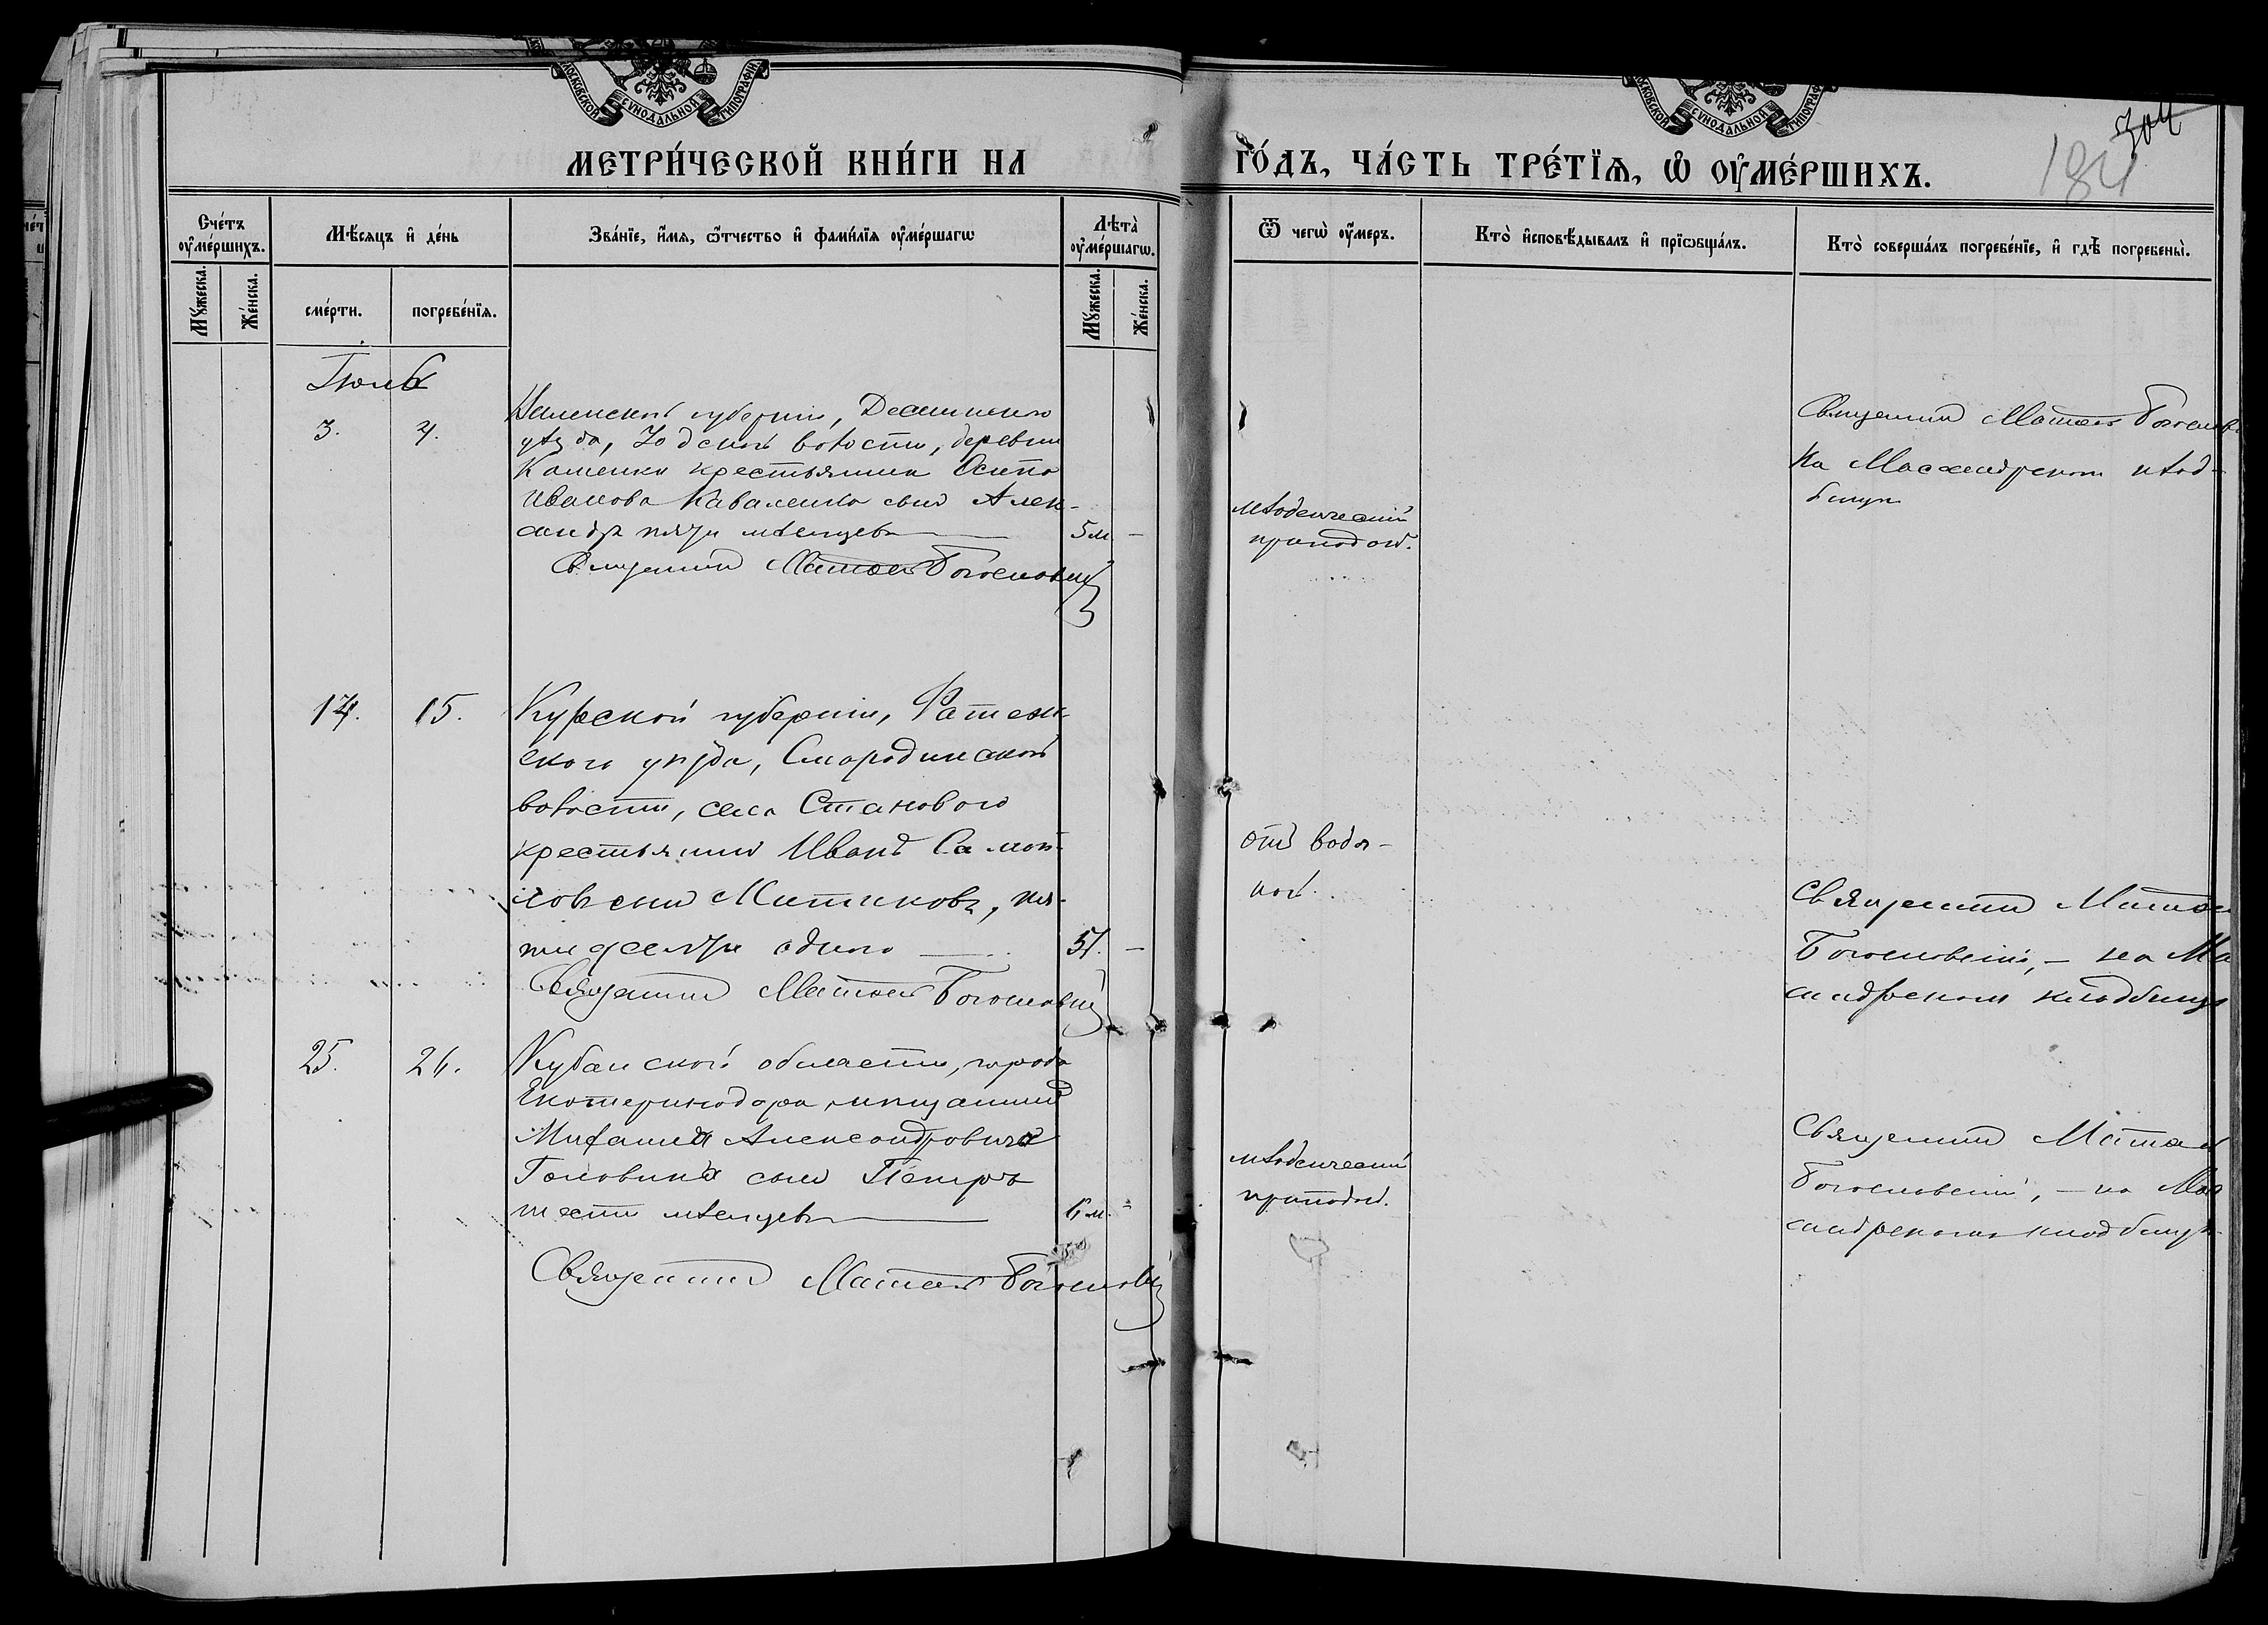 МОСКОВСКОЙ СѴНОДАЛЬНОЙ ТИПОГРАФІИ
МОСКОВСКОЙ СѴНОДАЛЬНОЙ ТИПОГРАФІИ
304
184
МЕТРИ́ЧЕСКОЙ КНИ́ГИ НА
ГО́ДЪ, ЧА́СТЬ ТРЕ́ТЇѦ, Ѡ҆ ОУ҆МЕ́РШИХЪ.
Сче́тъ оу҆ме́ршихъ.
Мꙋ́жеска.
Же́нска.
Мѣ́сѧцъ и҆ де́нь
сме́рти.
погребе́нїѧ.
Зва́нїе, и҆́мѧ, ѻ҆́тчество и҆ фами́лїѧ оу҆ме́ршагѡ
Лѣ́та̀ оу҆ме́ршагѡ.
Мꙋ́жеска.
Же́нска.
Ѿ чегѡ̀ оу҆́меръ.
Кто̀ и҆сповѣ́дывалъ и҆ прїѡбща́лъ.
Кто̀ соверша́лъ погребе́нїе, и҆ гдѣ̀ погребены̀.
Іюль
3. 4.
губерніи,
уѣзда, волости, деревни
Каменки крестьянина Осипа
Иванова Каваленка сынъ Алек-
сандръ пяти мѣсяцевъ 5 м –
Священникъ Матѳей Богословскій
младенческій
припадокъ.
Священникъ Матѳей Богословскій
На Массандрском клад-
бищѣ
14. 15.
Курской губерніи, Фатеж-
скаго уѣзда, Смородинской
волости, села Становаго
крестьянинъ Иванъ Самой-
ловъ сынъ Митиковъ, пя-
тидесяти одного 51. –
Священникъ Матѳей Богословскій
отъ водя-
ной.
Священникъ Матѳей
Богословскій, – на Ма
сандрскомъ кладбищѣ
25. 26.
Кубанской области, города
Екатеринодара мѣщанина
Михаила Александровича
Головина сынъ Петръ
шести мѣсяцевъ 6 м. –
Священникъ Матѳей Богословскій
младенческій
припадокъ.
Священникъ Матѳей
Богословскій, – на Мас
сандрскомъ кладбищѣ